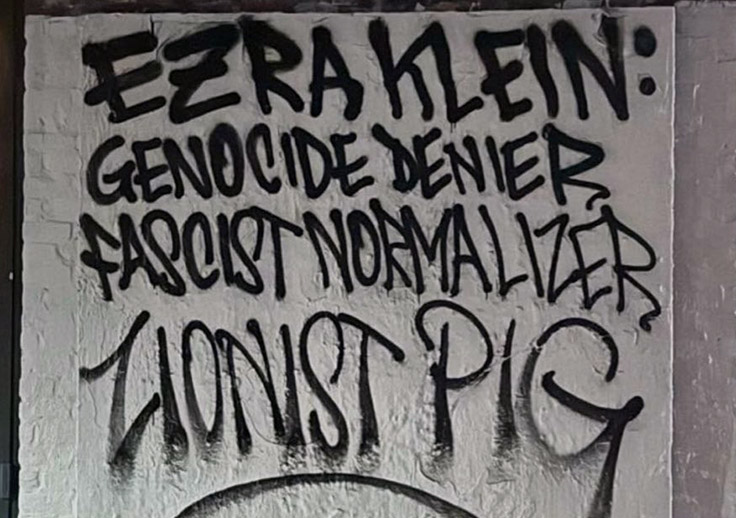 EZRA KLEIN:
GENOCIDE DENIER
FASCIST NORMALIZER
ZIONIST PIG